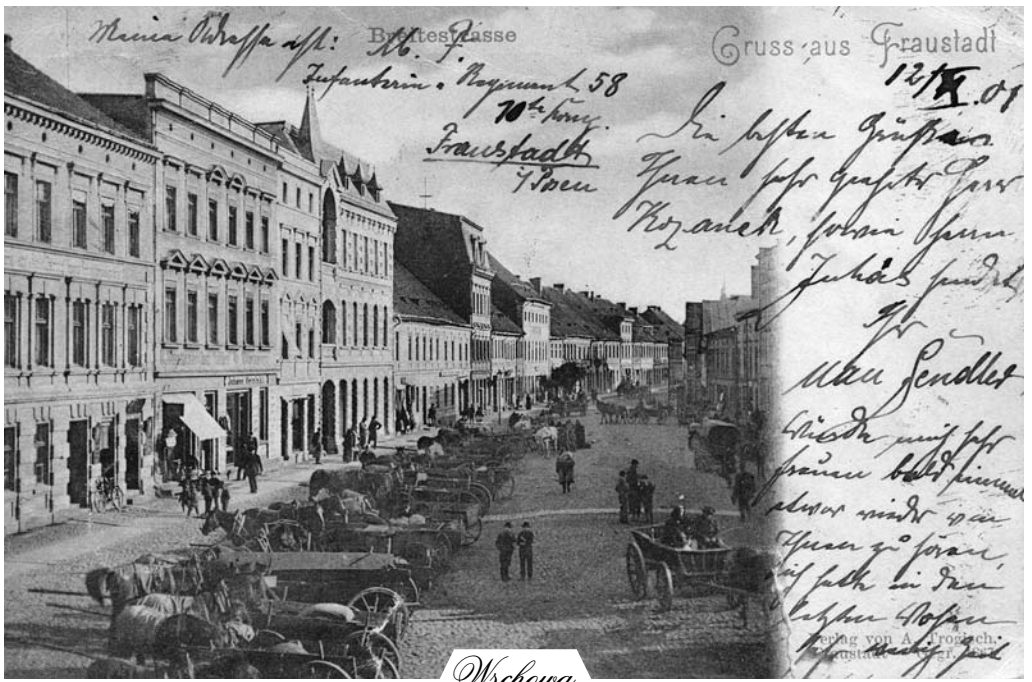 Breitestrasse
Gruss aus Fraustadt
Meine Adresse ist: M. F.
Infanterie-Regiment 58
10te Komp.
Fraustadt
i/Posen
12/XI.01
Die besten Grüße
Ihnen sehr geehrter Herr
Kozanek, sowie Herrn
Juhás sendet
Ihr
Max Gendler
würde mich sehr
freuen bald einmal
etwas wieder von
Ihnen zu hören,
ich hatte in den
letzten Wochen
Johann
Verlag von A. Trogisch,
Fraustadt
Wschowa